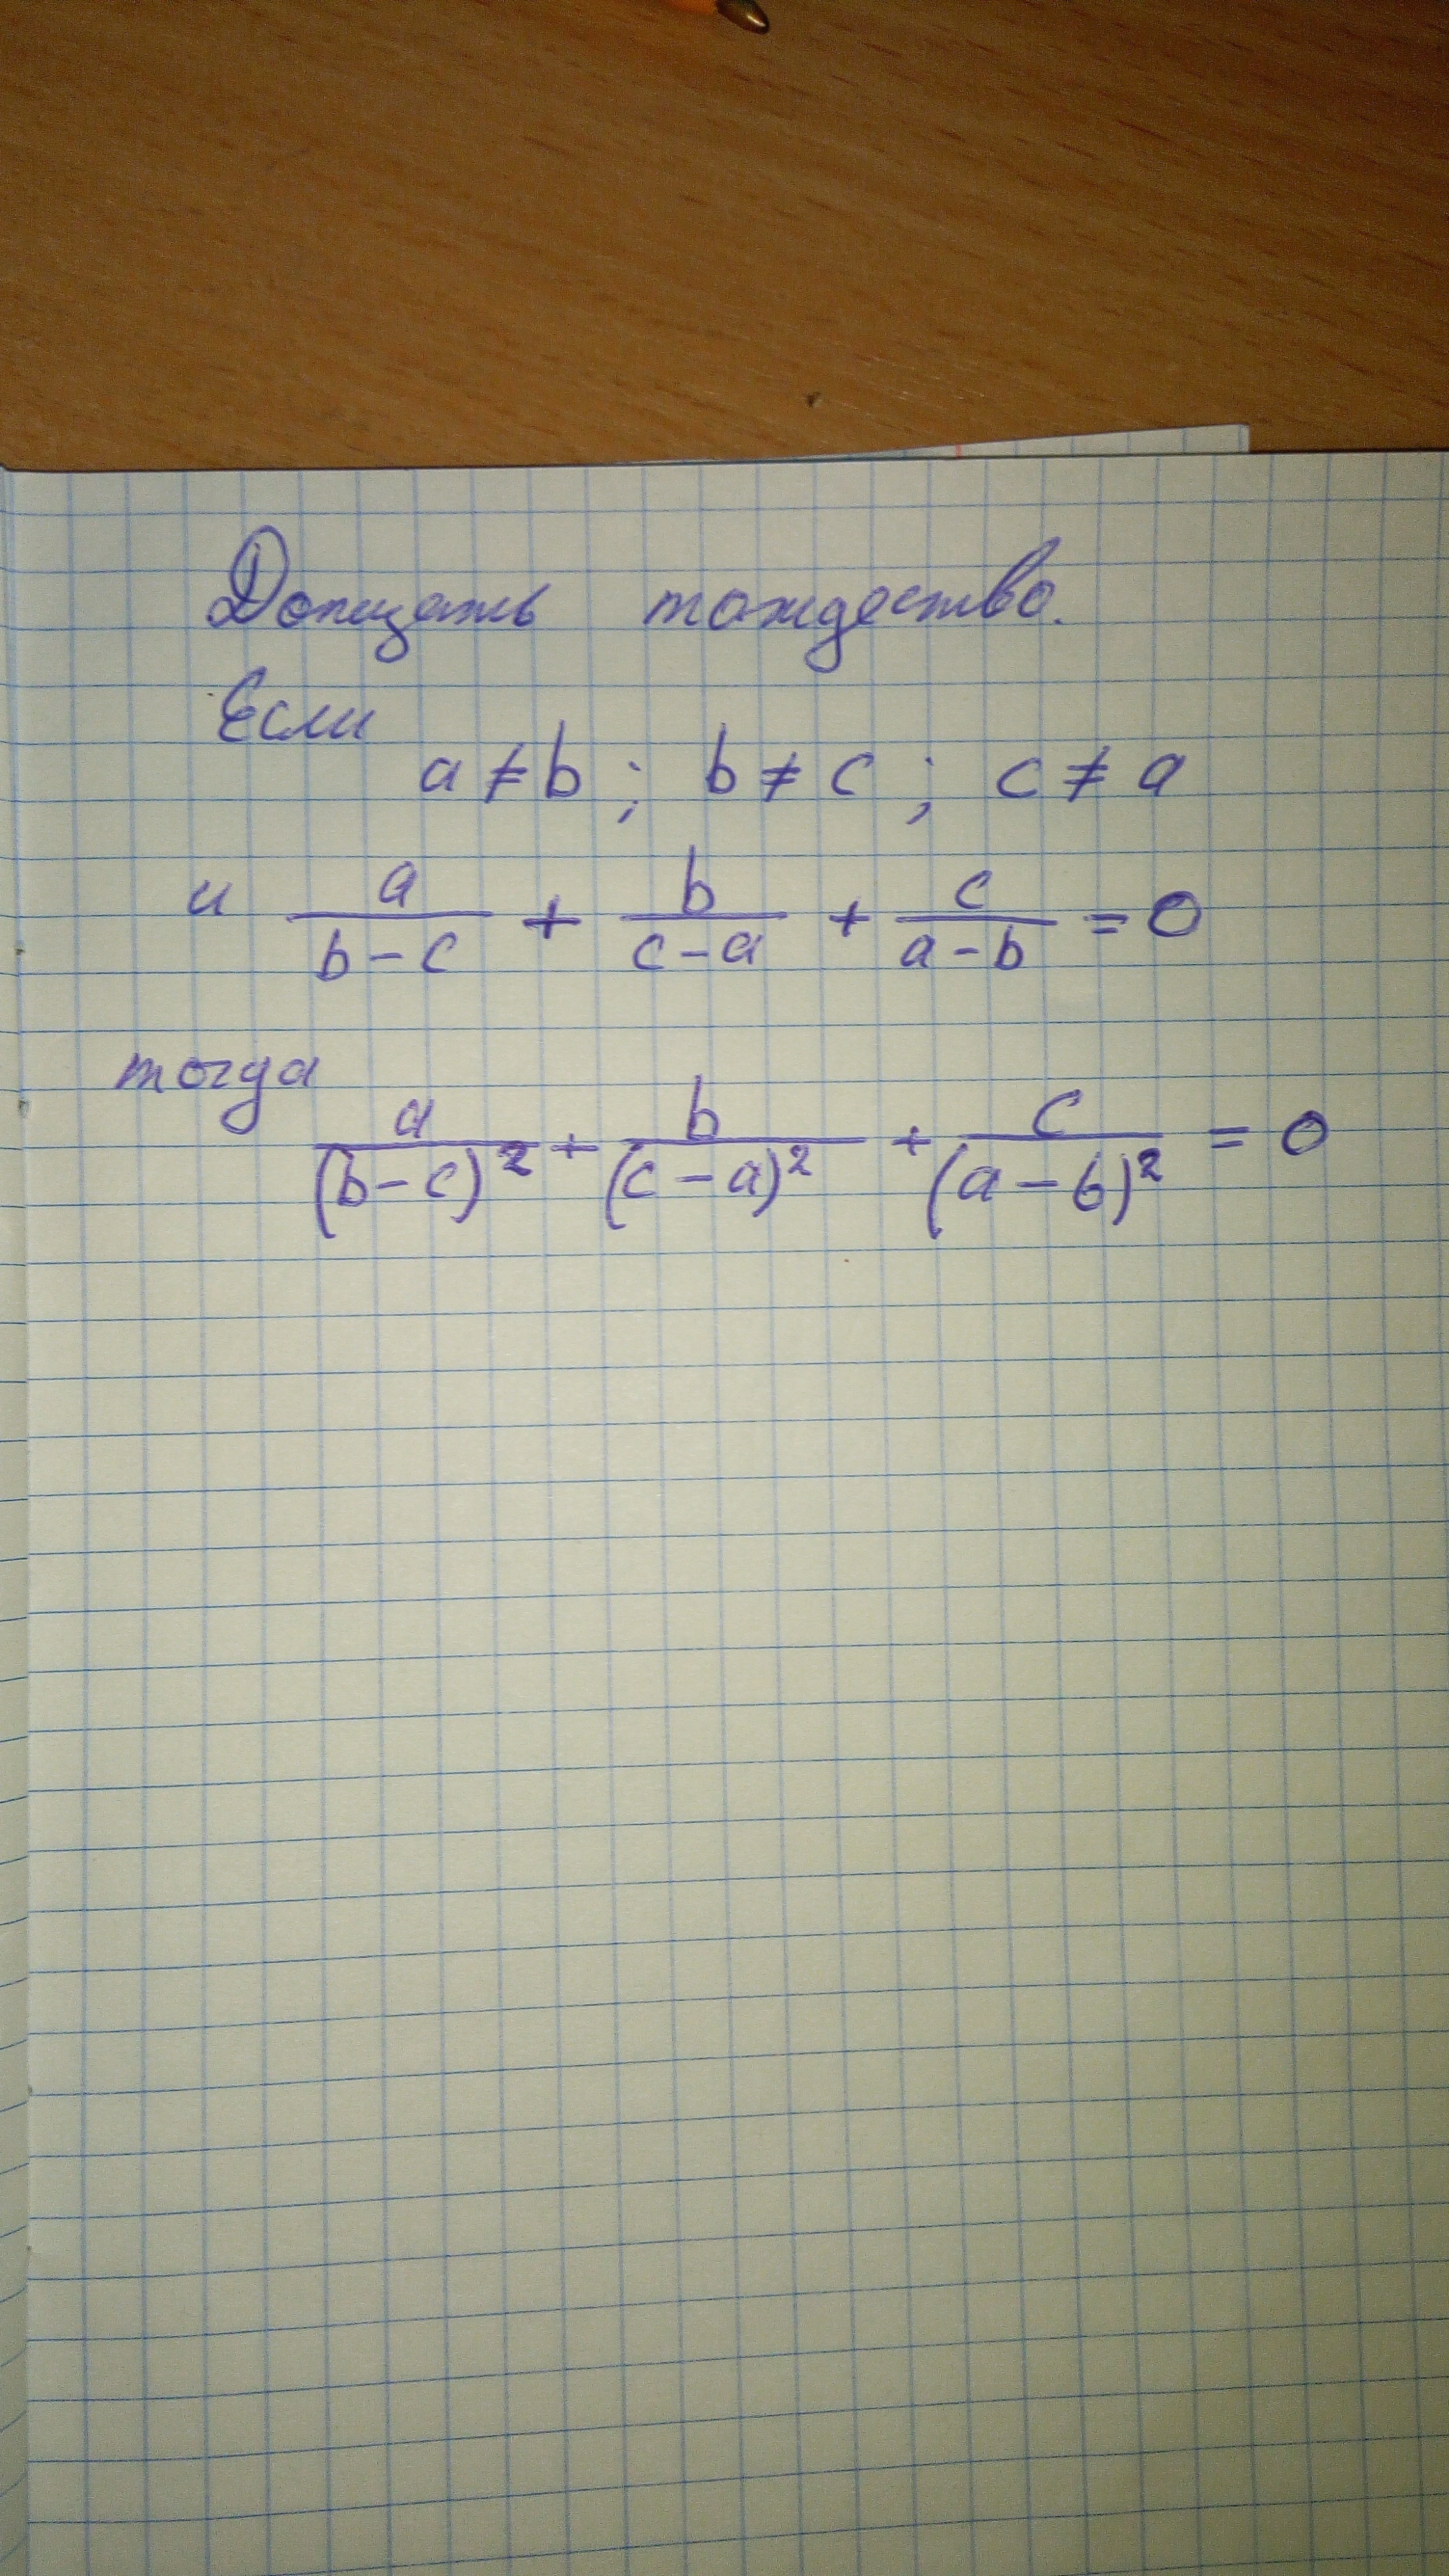 Доказать тождество.
Если
a ≠ b ; b ≠ c ; c ≠ a
и a/(b-c) + b/(c-a) + c/(a-b) = 0
тогда
a/(b-c)² + b/(c-a)² + c/(a-b)² = 0